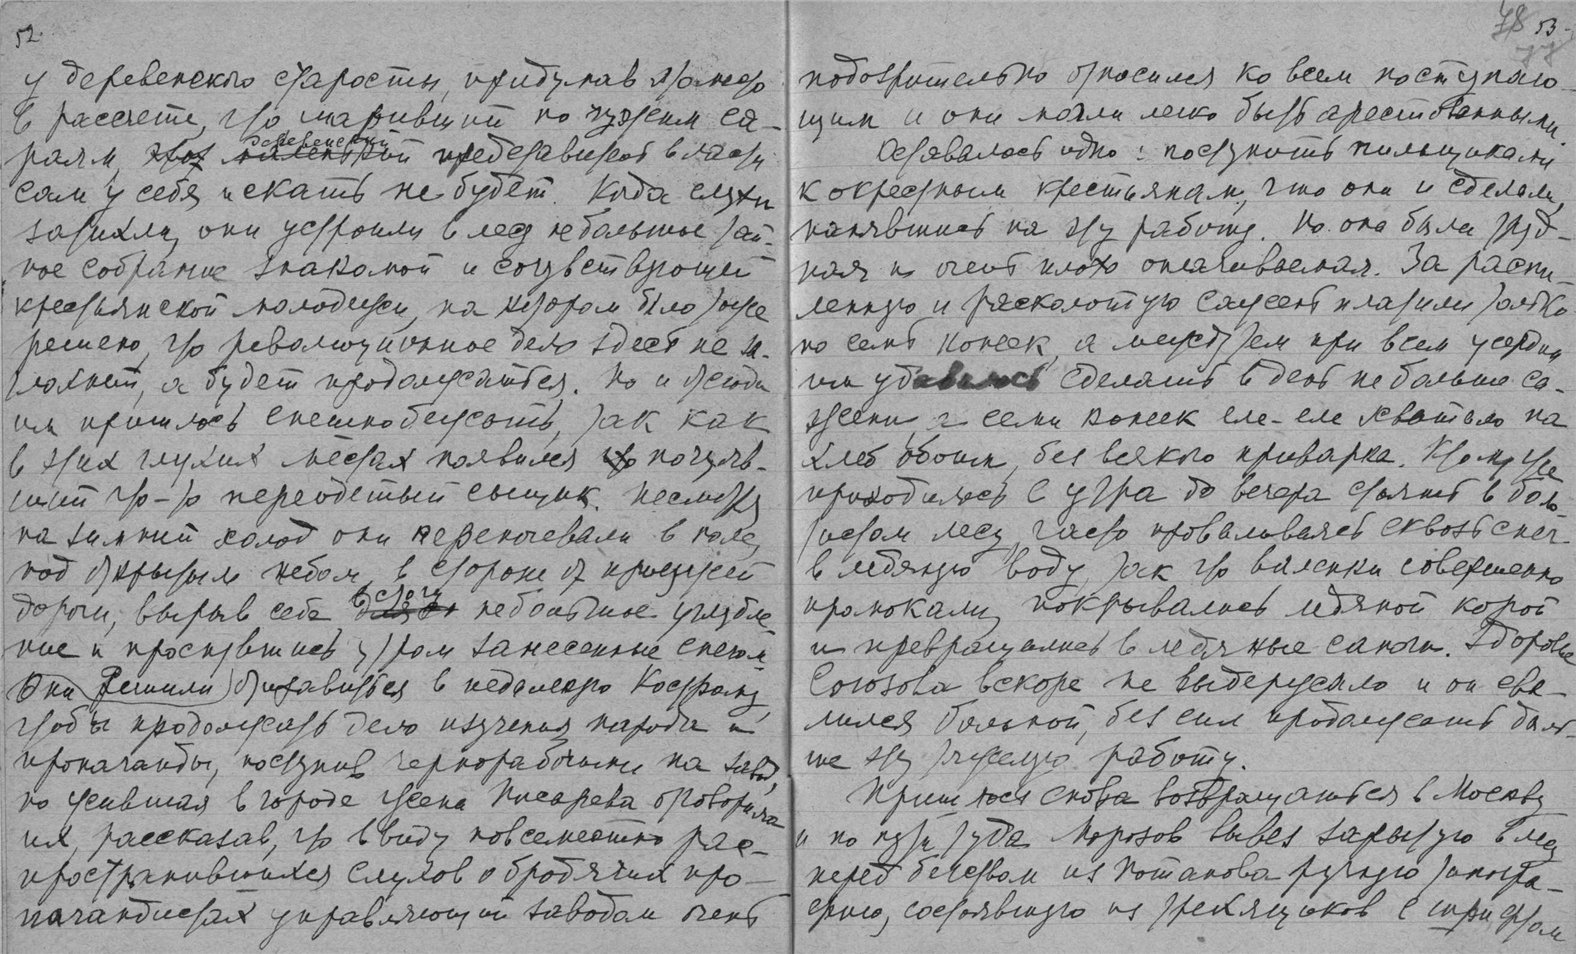 52.
у деревенского старосты, придумав это
в рассчете, что шаривший по чужим са-
раям, этот деревенский представитель власти
сам у себя искать не будет. Когда слухи
затихли, они устроили в лесу небольшое тай-
ное собрание знакомой и сочувствующей
крестьянской молодежи, на котором было тоже
решено, что революционное дело здесь не за-
глохнет, а будет продолжаться. Но и отсюда
им пришлось спешно бежать, так как
в этих глухих местах появился что-то почуяв-
ший переодетый сыщик. Несмотря
на зимний холод они переночевали в поле,
под открытым небом, в стороне от проезжей
дороги, вырыв себе в стогу небольшое углубле-
ние и проснувшись утром занесенные снегом.
Они решили отправиться в недалекую Кострому,
чтобы продолжать дело изучения народа и
пропаганды, поступив чернорабочими на завод,
но жившая в городе жена Писарева отговорила
их, рассказав, что ввиду повсеместно рас-
пространившихся слухов о бродячих про-
пагандистах управляющий заводом очень
78 53
77
подозрительно относился ко всем поступаю-
щим и они могли легко быть арестованными.
Оставалось одно: поступить пильщиками
к окрестным крестьянам, что они и сделали,
нанявшись на эту работу. Но она была труд-
ная и очень плохо оплачиваемая. За распи-
ленную и расколотую сажень платили только
по семь копеек, а между тем при всем усердии
им удавалось сделать в день не больше са-
жени и семи копеек еле-еле хватало на
хлеб обоим, без всякого приварка. К тому же
приходилось с утра до вечера стоять в боло-
тистом лесу, часто проваливаясь сквозь снег
в ледяную воду, так что валенки совершенно
промокали, покрывались ледяной корой
и превращались в ледяные сапоги. Здоровье
Союзова вскоре не выдержало и он сва-
лился больной, без сил продолжать даль-
ше эту тяжелую работу.
Пришлось снова возвращаться в Москву
и по пути туда Морозов вывез зарытую в лесу
перед бегством из Потапова ручную типогра-
фию, состоявшую из трех ящиков с шрифтом